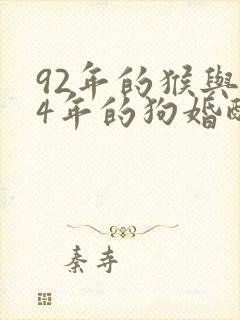 92年的猴與
4年的狗婚
秦寺